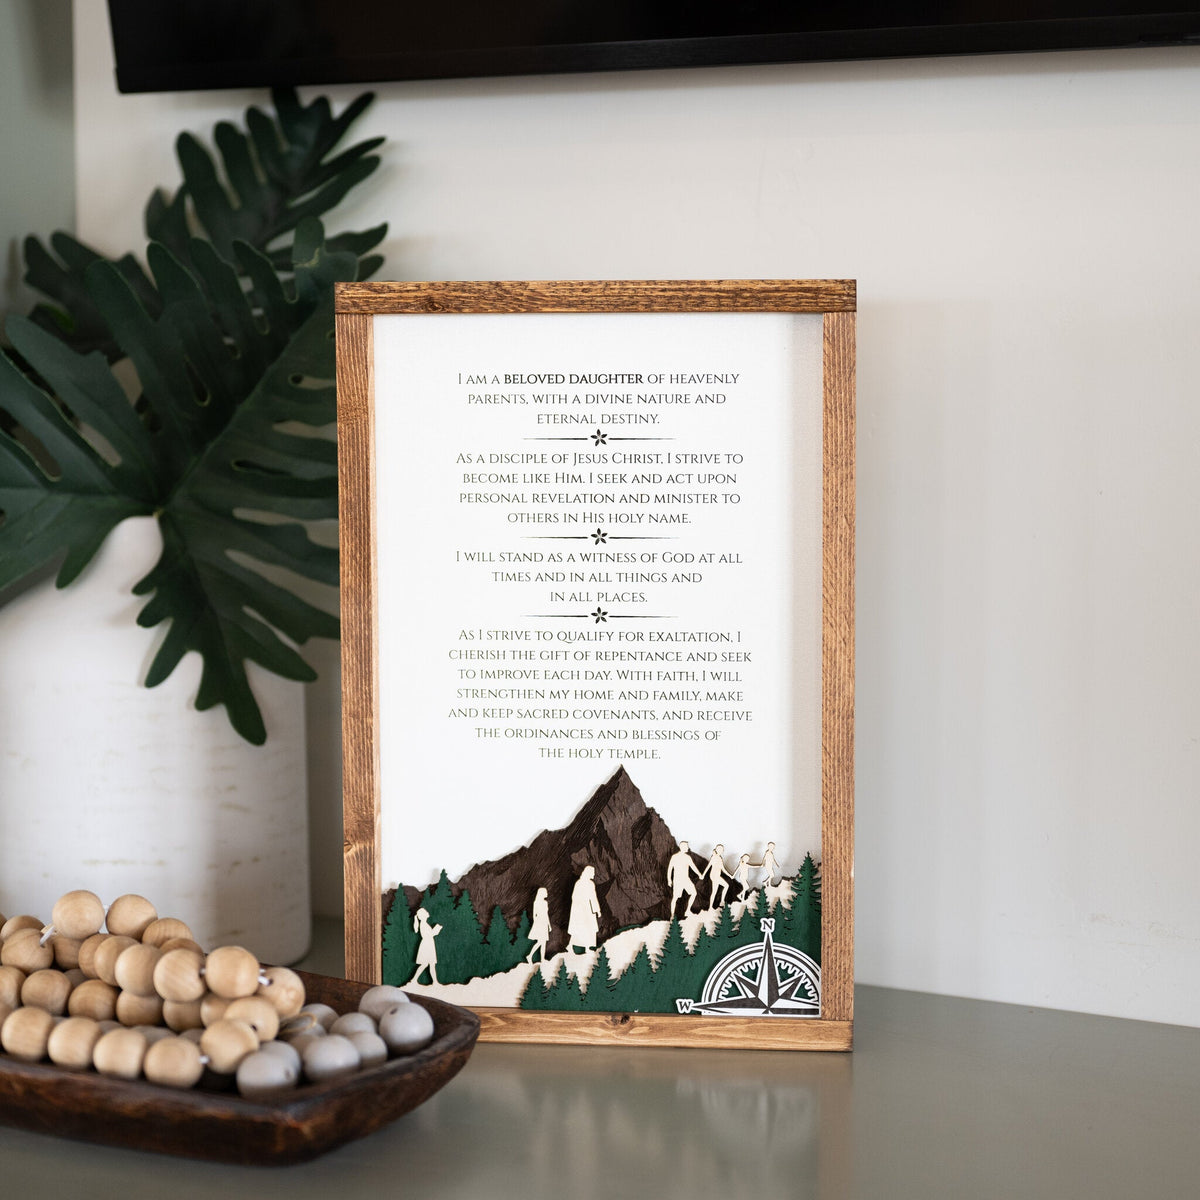 I AM A BELOVED DAUGHTER OF HEAVENLY
PARENTS, WITH A DIVINE NATURE AND
ETERNAL DESTINY.
AS A DISCIPLE OF JESUS CHRIST, I STRIVE TO
BECOME LIKE HIM. I SEEK AND ACT UPON
PERSONAL REVELATION AND MINISTER TO
OTHERS IN HIS HOLY NAME.
I WILL STAND AS A WITNESS OF GOD AT ALL
TIMES AND IN ALL THINGS AND
IN ALL PLACES.
AS I STRIVE TO QUALIFY FOR EXALTATION, I
CHERISH THE GIFT OF REPENTANCE AND SEEK
TO IMPROVE EACH DAY. WITH FAITH, I WILL
STRENGTHEN MY HOME AND FAMILY, MAKE
AND KEEP SACRED COVENANTS, AND RECEIVE
THE ORDINANCES AND BLESSINGS OF
THE HOLY TEMPLE.
N
W